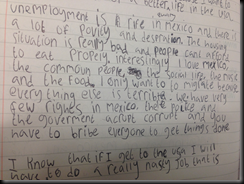 better life in the USA
unemployment is a fire in Mexico and there is
a lot of povity and despration. The housing
situation is really bad and people cant afford
to eat propely. Interesingly I love Mexico,
the commoun people, the social life, the music
and the food, I only want to migrate because
every thing else is terrible. We have very
few rights in Mexico, the police are
the goverment acrost corrupt and you
have to bribe everyone to get things done
I know that if I get to the USA I will
have to do a really nasty job that is